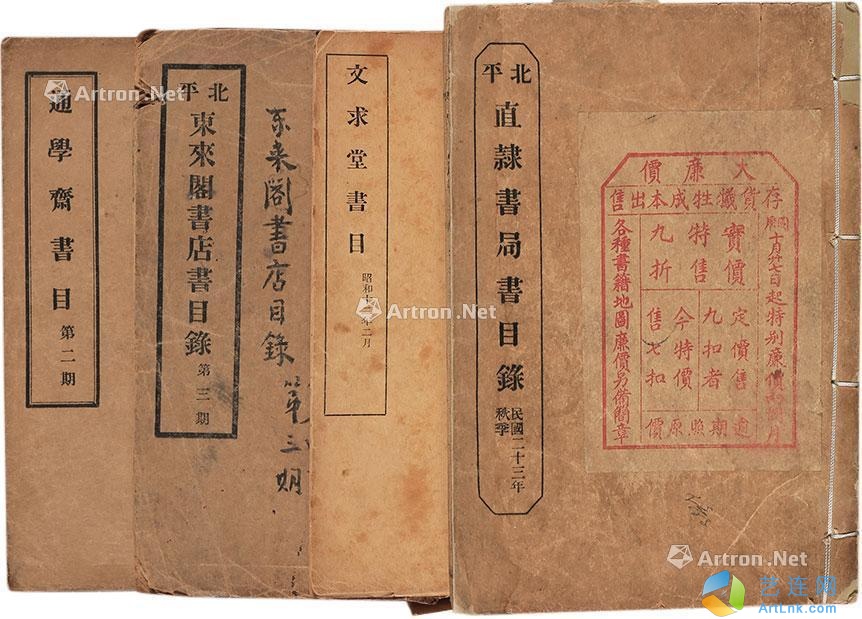 通學齋書目 第二期
北平
東來閣書店書目錄 第三期
东来阁書店目錄 第三期
文求堂書目
昭和十二年二月
北平
直隸書局書目錄 民國二十三年秋季
大廉價
存貨犧牲成本出售
國曆十月廿七日起特別廉價
實價特售九折
定價售九扣者今特價售七扣
逾期照原價
各種書籍地圖廉價另備簡章
Artron.Net
Artron.Net
Artron.Net
Artron.Net
Artron.Net
艺连网
ArtLnk.com